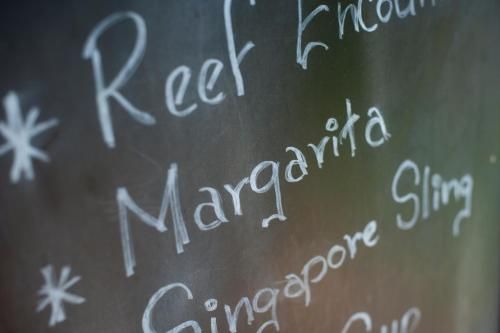 * Reef Encoun
Margarita
* Singapore Sling